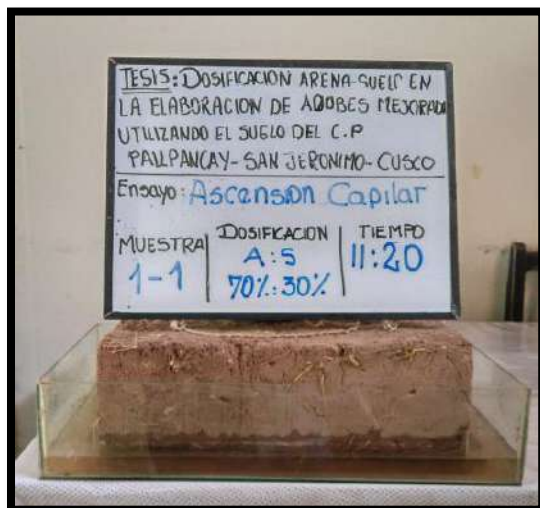 TESIS: DOSIFICACION ARENA-SUELO EN
LA ELABORACION DE ADOBES MEJORADO
UTILIZANDO EL SUELO DEL C.P
PALLPANCAY-SAN JERONIMO-CUSCO
Ensayo: Ascension Capilar
MUESTRA DOSIFICACION TIEMPO
1-1 A:S 11:20
70%:30%